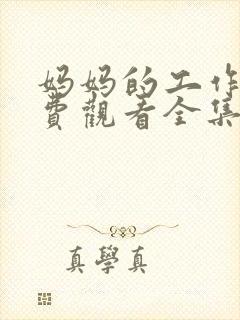 妈妈的工作
費觀看全集
真學真